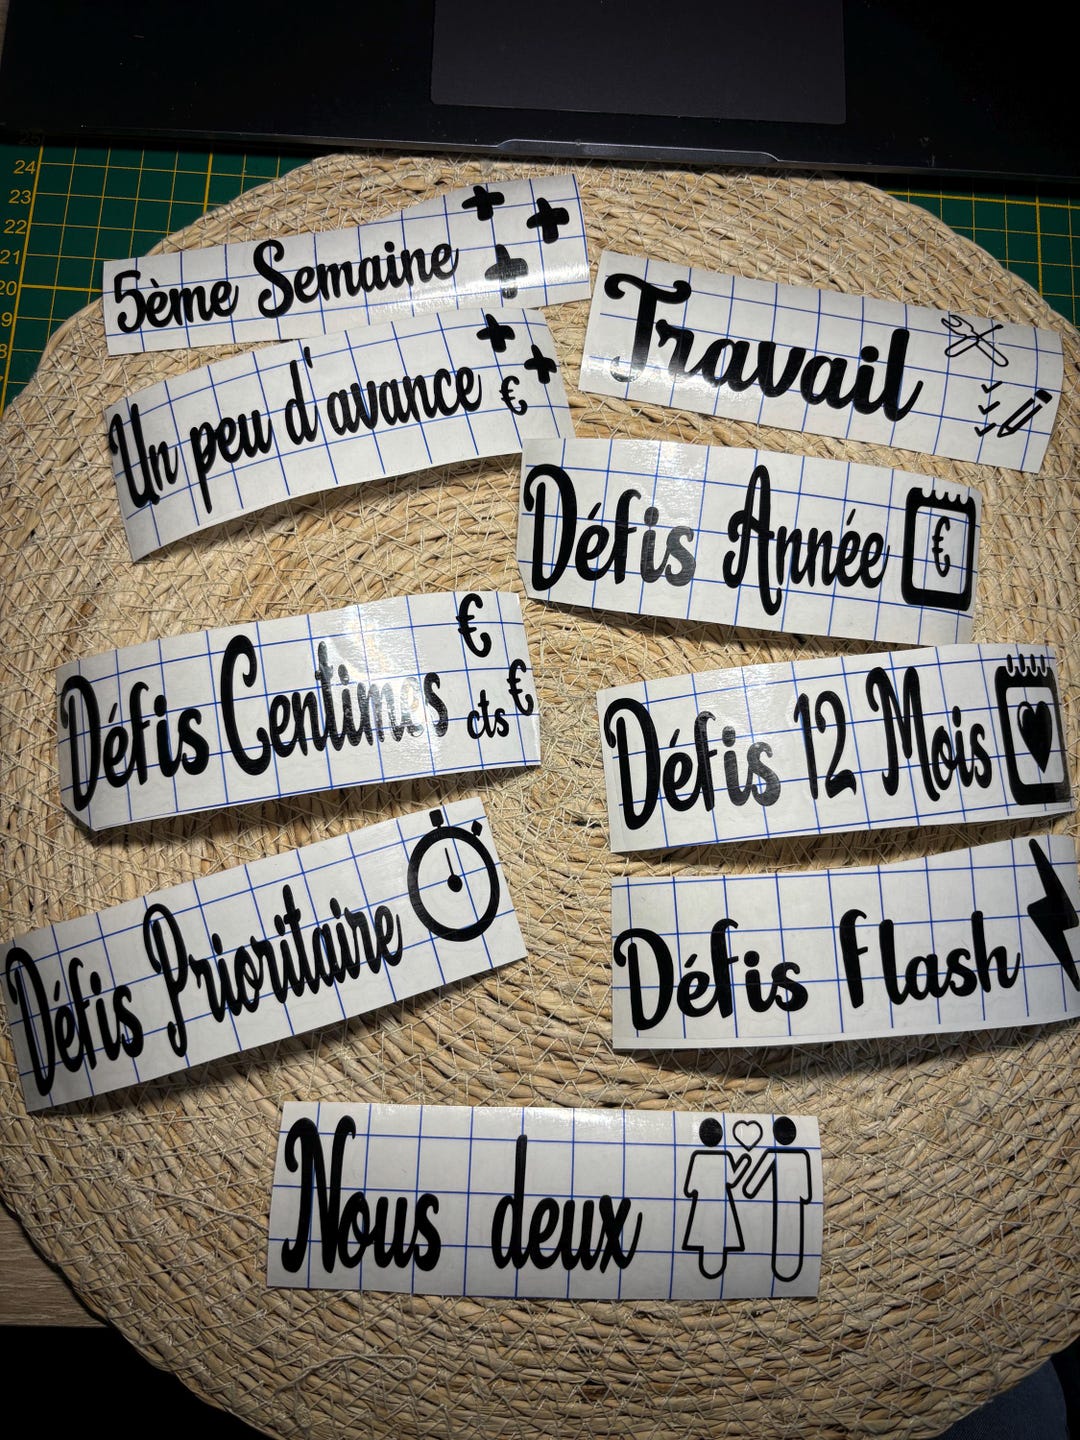 24
23
22
21
20
5ème Semaine
Un peu d'avance €
Travail
Défis Année €
Défis Centimes € cts €
Défis 12 Mois
Défis Prioritaire
Défis Flash
Nous deux